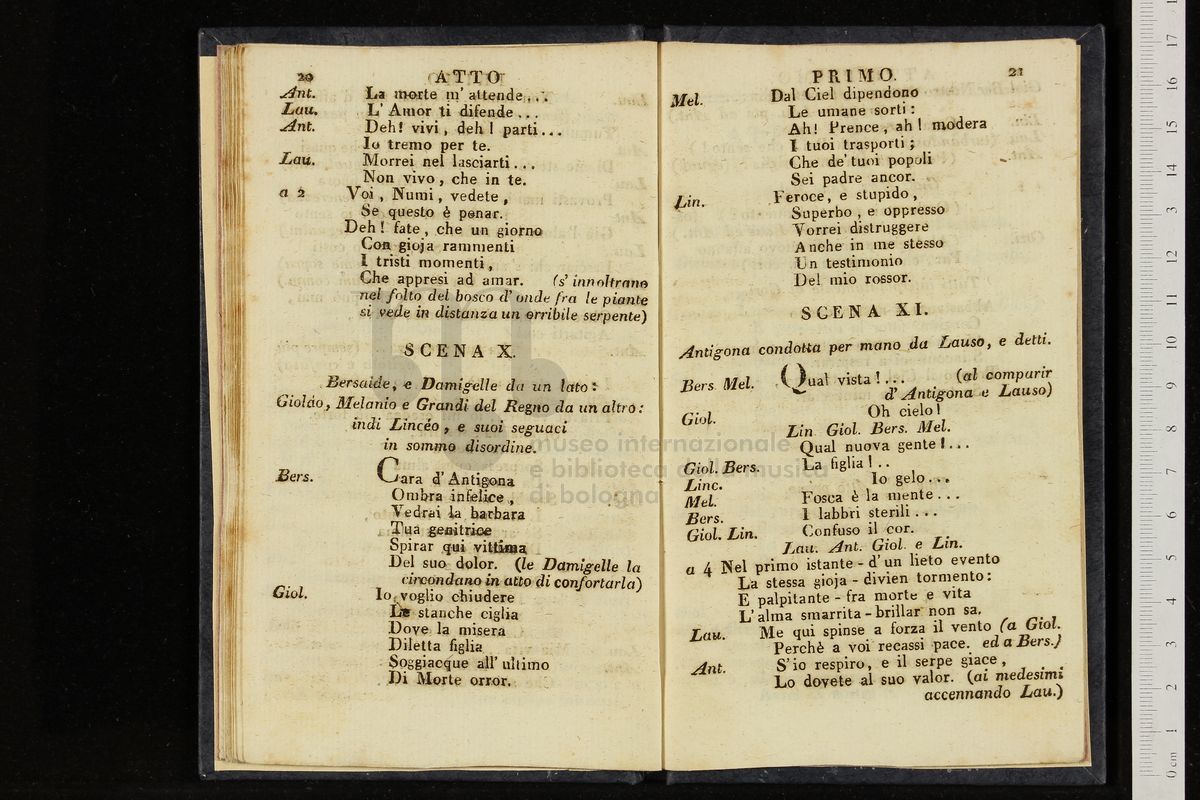 20 ATTO
Ant. La morte m' attende...
Lau. L' Amor ti difende...
Ant. Deh! vivi, deh! parti...
Io tremo per te.
Lau. Morrei nel lasciarti...
Non vivo, che in te.
a 2 Voi, Numi, vedete,
Se questo è penar.
Deh! fate, che un giorno
Con gioja rammenti
I tristi momenti,
Che appresi ad amar. (s' innoltrano
nel folto del bosco d' onde fra le piante
si vede in distanza un orribile serpente)
SCENA X.
Bersaide, e Damigelle da un lato:
Gioldo, Melanio e Grandi del Regno da un altro:
indi Lincéo, e suoi seguaci
in sommo disordine.
Bers. Cara d' Antigona
Ombra infelice,
Vedrai la barbara
Tua genitrice
Spirar qui vittima
Del suo dolor. (le Damigelle la
circondano in atto di confortarla)
Giol. Io voglio chiudere
Le stanche ciglia
Dove la misera
Diletta figlia
Soggiacque all' ultimo
Di Morte orror.
PRIMO. 21
Mel. Dal Ciel dipendono
Le umane sorti:
Ah! Prence, ah! modera
I tuoi trasporti;
Che de' tuoi popoli
Sei padre ancor.
Lin. Feroce, e stupido,
Superbo, e oppresso
Vorrei distruggere
Anche in me stesso
Un testimonio
Del mio rossor.
SCENA XI.
Antigona condotta per mano da Lauso, e detti.
Bers. Mel. Qual vista!... (al comparir
d' Antigona e Lauso)
Giol. Oh cielo!
Lin. Giol. Bers. Mel.
Qual nuova gente!...
Giol. Bers. La figlia!..
Linc. Io gelo...
Mel. Fosca è la mente...
Bers. I labbri sterili...
Giol. Lin. Confuso il cor.
Lau. Ant. Giol. e Lin.
a 4 Nel primo istante - d' un lieto evento
La stessa gioja - divien tormento:
E palpitante - fra morte e vita
L' alma smarrita - brillar non sa.
Lau. Me qui spinse a forza il vento (a Giol.
Perchè a voi recassi pace. ed a Bers.)
Ant. S' io respiro, e il serpe giace,
Lo dovete al suo valor. (ai medesimi
accennando Lau.)
museo internazionale
e biblioteca della musica
di bologna
0 cm 1 2 3 4 5 6 7 8 9 10 11 12 13 14 15 16 17